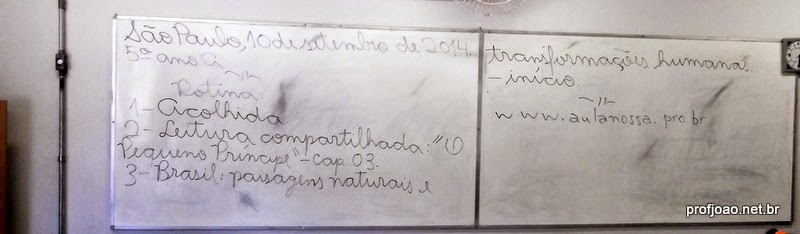 São Paulo, 10 de setembro de 2014.
5º ano A
Rotina:
1- Acolhida
2- Leitura compartilhada: "O
Pequeno Príncipe" - Cap. 03.
3- Brasil: paisagens naturais e
transformações humanas
- início.
www.aulanossa.pro.br
profjoao.net.br